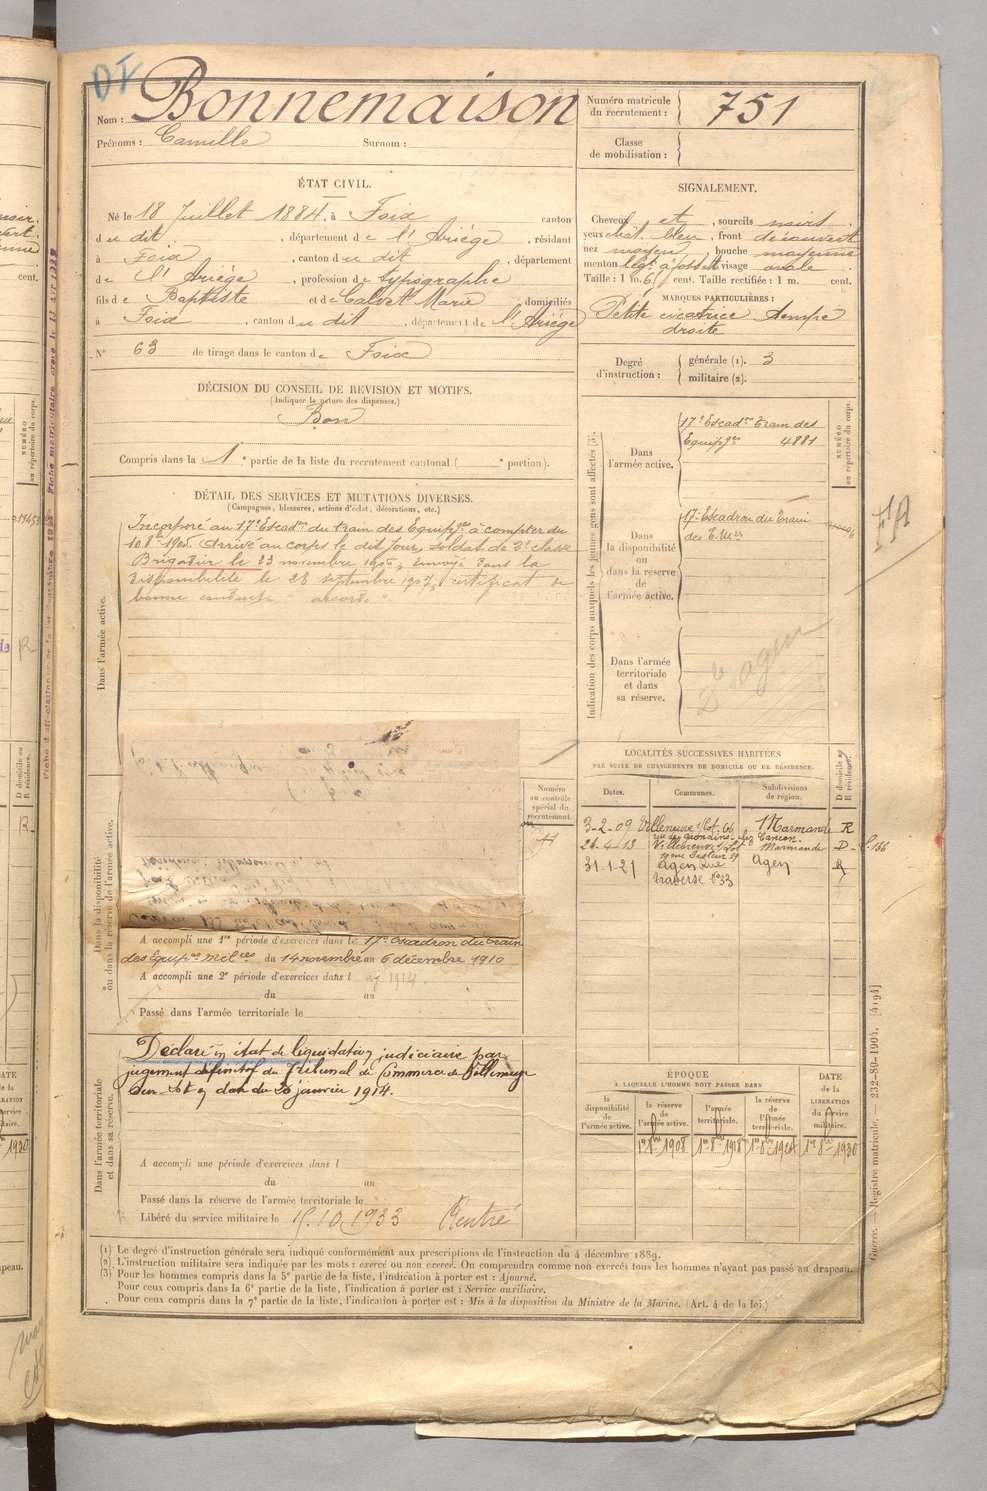 DI
Nom : Bonnemaison
Prénoms : Camille Surnom :
Numéro matricule du recrutement : 751
Classe de mobilisation :
ÉTAT CIVIL.
Né le 18 Juillet 1884, à Foix canton
du dit, département de l'Ariège, résidant
à Foix, canton du dit, département
de l'Ariège, profession de typographe
fils de Baptiste et de Calvet Marie domiciliés
à Foix, canton du dit, département de l'Ariège
N° 63 de tirage dans le canton de Foix
SIGNALEMENT.
Cheveux et, sourcils noirs
yeux chât. bleu, front découvert
nez moyen, bouche moyenne
menton à fossette visage ovale
Taille : 1 m. cent. Taille rectifiée : 1 m. cent.
MARQUES PARTICULIÈRES :
Petite cicatrice tempe
droite
Degré d'instruction : générale (1). 3
militaire (2).
DÉCISION DU CONSEIL DE REVISION ET MOTIFS.
(Indiquer la nature des dispenses.)
Bon
Compris dans la 1e partie de la liste du recrutement cantonal (e portion).
DÉTAIL DES SERVICES ET MUTATIONS DIVERSES.
(Campagnes, blessures, actions d'éclat, décorations, etc.)
Dans l'armée active.
Incorporé au 17e Escadron du train des Equipages à compter du
10 8bre 1905. Arrivé au corps le dit jour, soldat de 2e classe
Brigadier le 23 novembre 1906, envoyé dans la
disponibilité le 28 septembre 1907, certificat de
bonne conduite "accordé".
Indication des corps auxquels les jeunes gens sont affectés (3).
NUMÉRO au répertoire du corps.
Dans l'armée active.
17e Escadon Train des
Equipages 4881
Dans la disponibilité ou dans la réserve de l'armée active.
17e Escadron du Train
des E. Mres
FA
Dans l'armée territoriale et dans sa réserve.
Agen
LOCALITÉS SUCCESSIVES HABITÉES
PAR SUITE DE CHANGEMENTS DE DOMICILE OU DE RÉSIDENCE.
Dates. Communes. Subdivisions de région. D domicile ou R résidence.
3-2-09 Villeneuve s/Lot Marmande R
21-4-13 Villeneuve s/Lot Marmande D
31-1-21 Agen Rue Agen R
traverse n°33
Dans la disponibilité ou dans la réserve de l'armée active.
Numéro au contrôle spécial du recrutement.
A accompli une 1re période d'exercices dans le 17e Escadron du train
des Equipages milres du 14 novembre au 6 décembre 1910
A accompli une 2e période d'exercices dans l
du au
Passé dans l'armée territoriale le
Dans l'armée territoriale et dans sa réserve.
Déclaré en état de liquidation judiciaire par
jugement définitif du Tribunal de Commerce de Villeneuve
sur Lot en date du 20 janvier 1914.
A accompli une période d'exercices dans l
du au
Passé dans la réserve de l'armée territoriale le
Libéré du service militaire le 15.10.1933
ÉPOQUE
À LAQUELLE L'HOMME DOIT PASSER DANS
la disponibilité de l'armée active. la réserve de l'armée active. l'armée territoriale. la réserve de l'armée territoriale.
DATE de la LIBÉRATION du service militaire.
1er 8bre 1908 1er 8bre 1918 1er 8bre 1924 1er 8bre 1930
(1) Le degré d'instruction générale sera indiqué conformément aux prescriptions de l'instruction du 4 décembre 1889.
(2) L'instruction militaire sera indiquée par les mots : exercé ou non exercé. On comprendra comme non exercés tous les hommes n'ayant pas passé au drapeau.
(3) Pour les hommes compris dans la 5e partie de la liste, l'indication à porter est : Ajourné.
Pour ceux compris dans la 6e partie de la liste, l'indication à porter est : Service auxiliaire.
Pour ceux compris dans la 7e partie de la liste, l'indication à porter est : Mis à la disposition du Ministre de la Marine. (Art. 4 de la loi.)
Guerre. — Registre matricule. — 232-89-1904. [4194]